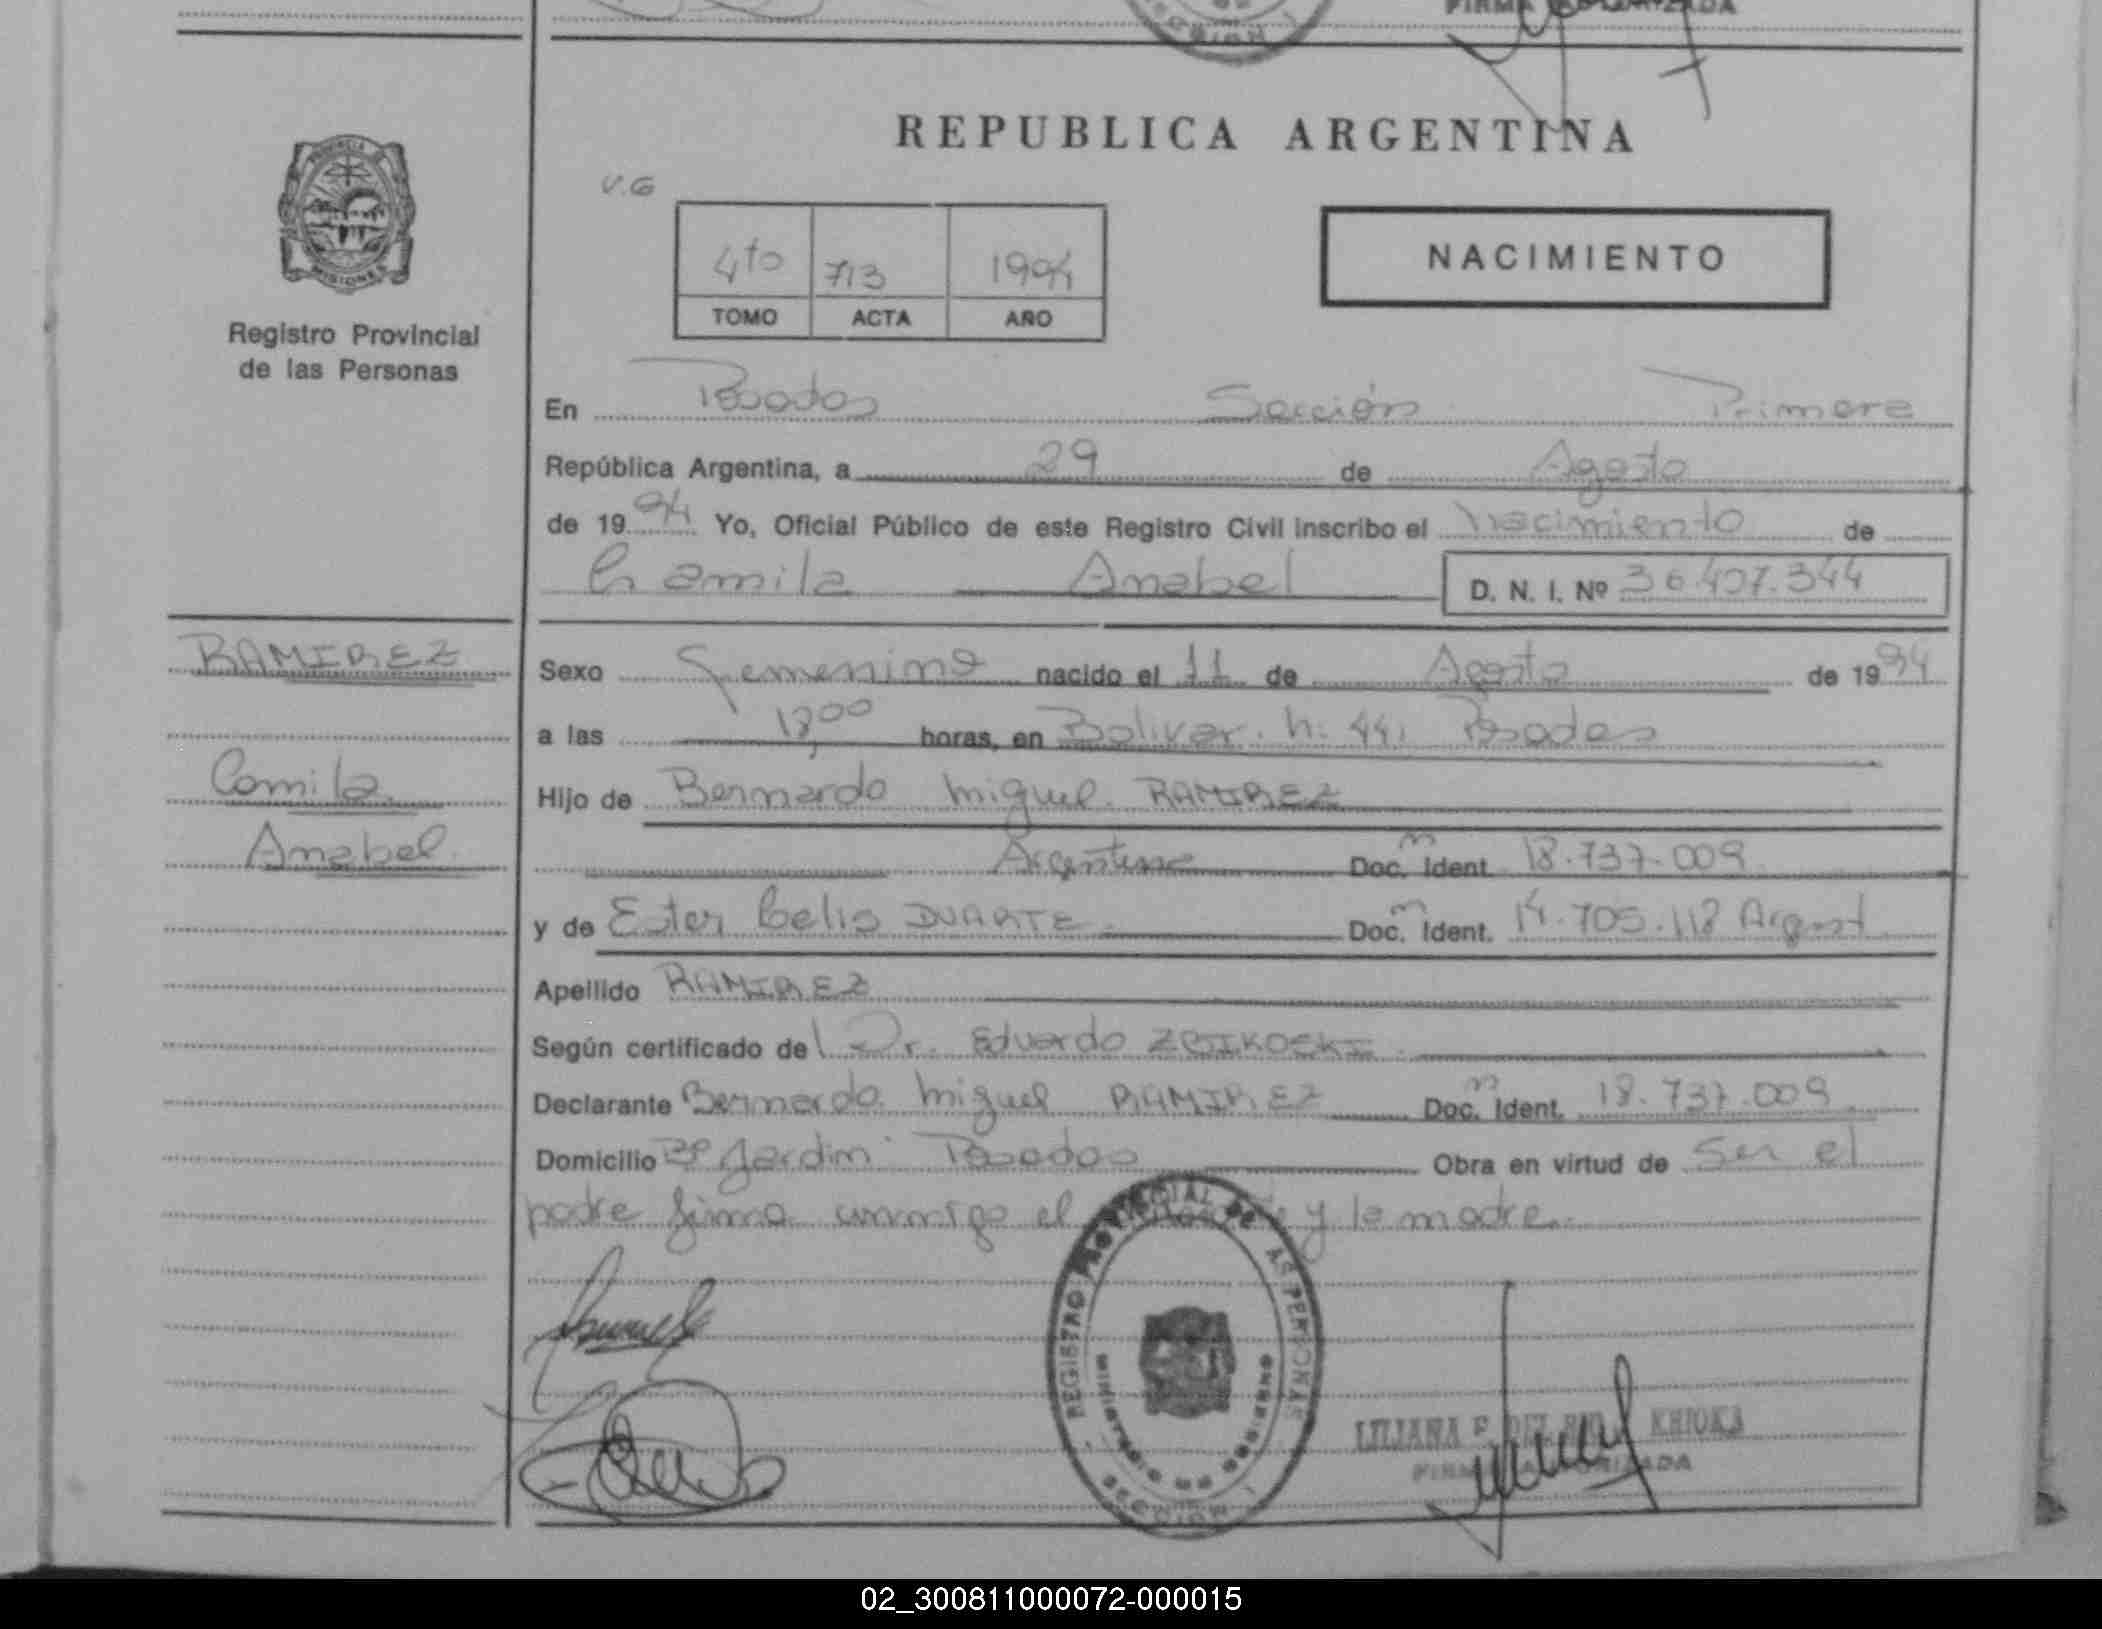 FIRMA AUTORIZADA
REPUBLICA ARGENTINA
PROVINCIA DE
MISIONES
Registro Provincial
de las Personas
V.G
4to 713 1994
TOMO ACTA AÑO
NACIMIENTO
En Posadas Sección Primera
República Argentina, a 29 de Agosto
de 1994 Yo, Oficial Público de este Registro Civil inscribo el nacimiento de
Camila Anabel D. N. I. Nº 36.407.344
RAMIREZ
Camila
Anabel
Sexo Femenino nacido el 11 de Agosto de 1994
a las 18,00 horas, en Bolivar. n: 441 Posadas
Hijo de Bernardo Miguel RAMIREZ
Argentino Doc. Ident. 18.737.009
y de Ester Celis DUARTE Doc. Ident. 14.705.118 Argent
Apellido RAMIREZ
Según certificado del Dr. Eduardo
Declarante Bernardo Miguel RAMIREZ Doc. Ident. 18.737.009
Domicilio Bº Jardin Posadas Obra en virtud de ser el
padre firma conmigo el y la madre.
REGISTRO PROVINCIAL DE LAS PERSONAS
MINISTERIO DE GOBIERNO
SECCION 1
LILIANA F. DEL RIO KHIOKA
FIRMA AUTORIZADA
02_300811000072-000015